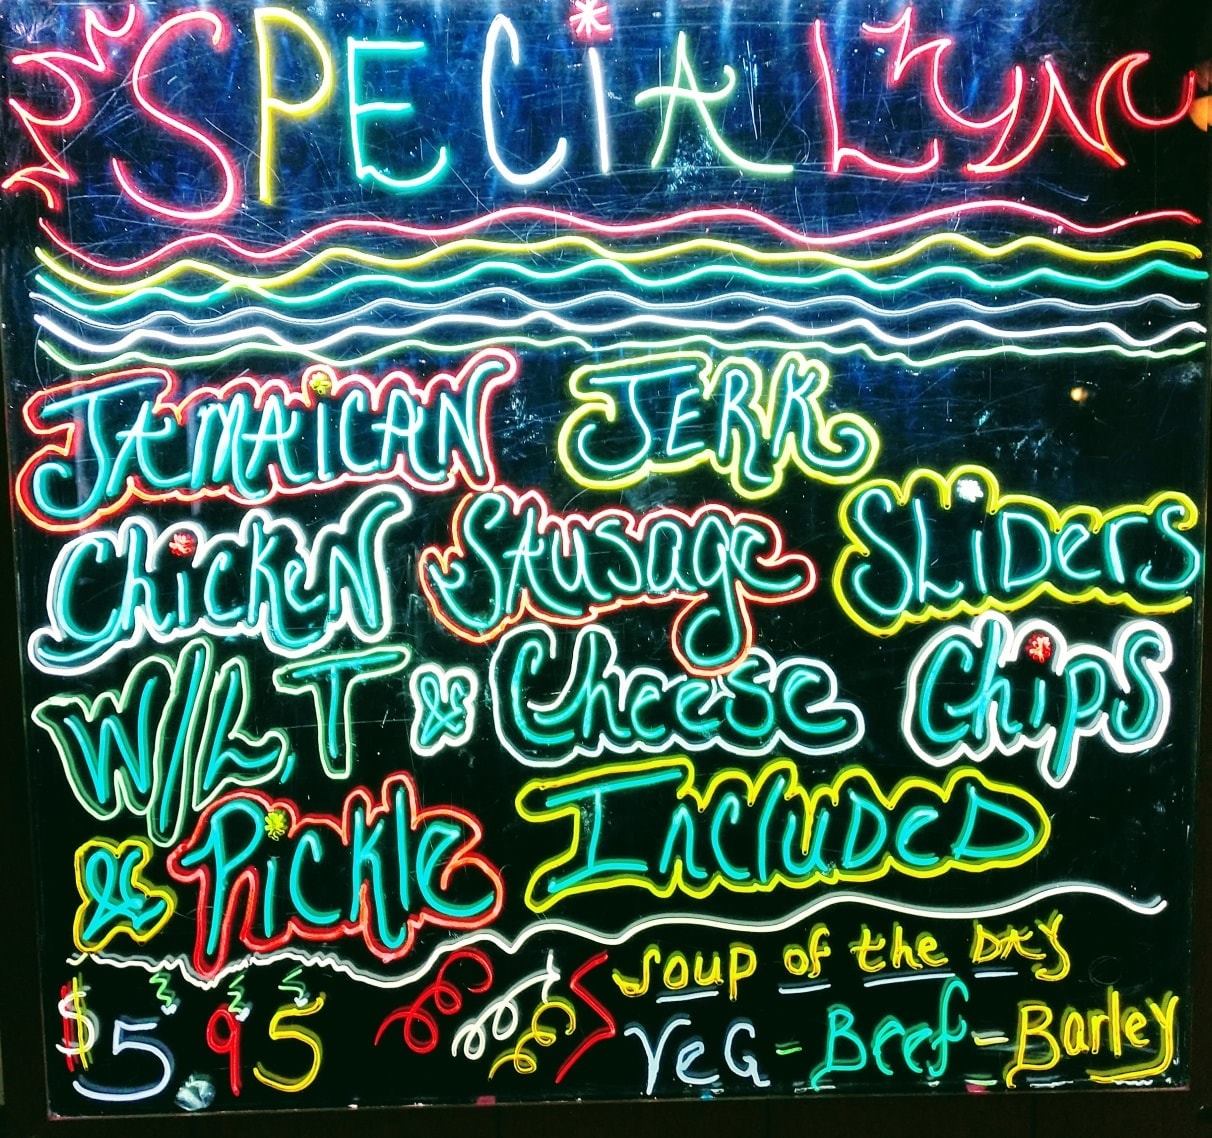 SPECiAL
JAMAiCAN JERK
ChickeN SAusage SLiDers
W/L, T & Cheese Chips
& Pickle IncluDeD
$5.95
Soup of the DAY
VeG - Beef - Barley